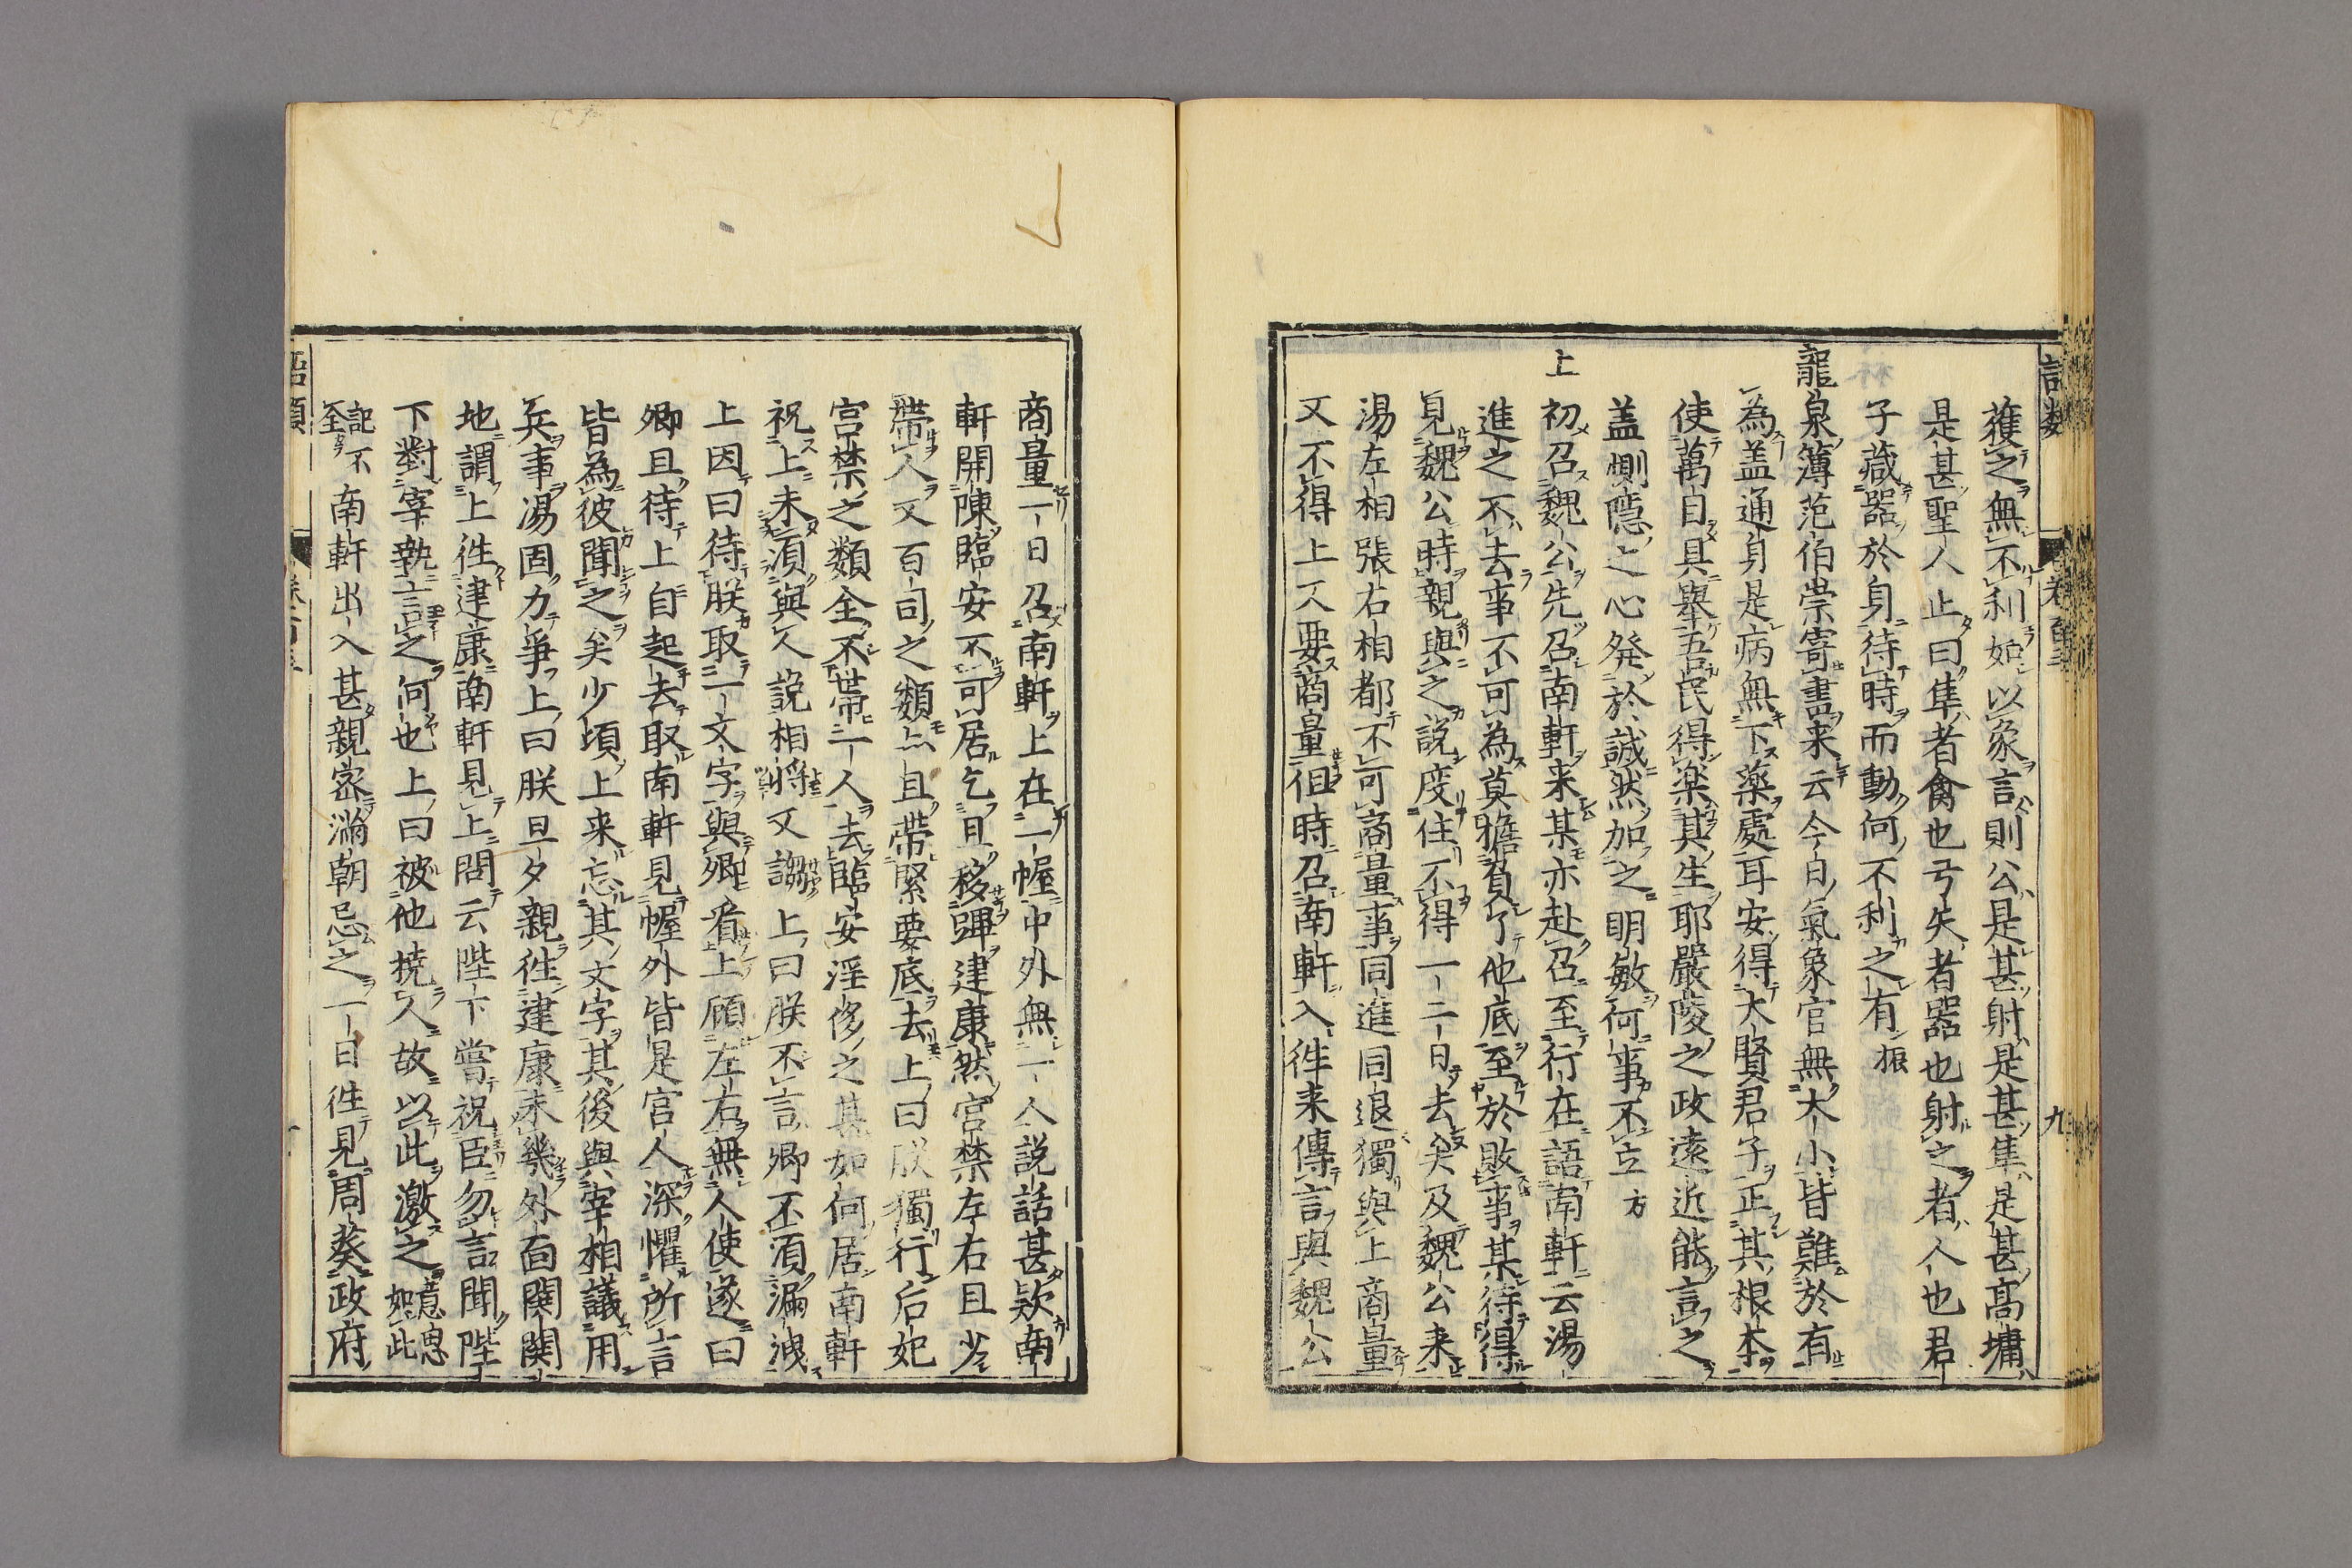 獲之無不利如以象言則公是甚射是甚隼是甚髙墉
是甚聖人止曰隼者禽也弓矢者器也射之者人也君
子藏器於身待時而動何不利之有振
龍泉簿范伯崇寄書来云今日氣象官無大小皆難於有
為盖通身是病無下藥處耳安得大賢君子正其根本
使萬目具舉吾民得楽其生耶嚴陵之政遠近能言之
盖惻隠之心発於誠然加之明敏何事不立方
上初召魏公先召南軒来某亦赴召至行在語南軒云湯
進之不去事不可為莫擔負了他底至於敗事某待得
見魏公時親與之說度住不得一二日去矣及魏公来
湯左相張右相都不可商量事同進同退獨與上商量
又不得上又要商量但時召南軒入徃来傳言與魏公
商量一日召南軒上在一幄中外無一人説話甚欵南
軒開陳臨安不可居乞且移蹕建康然宫禁左右且少
帶人又百司之類亦且帶緊要底去上曰朕獨行后妃
宫禁之類全不帶一人去臨安淫侈之甚如何居南軒
祝上未須與人説相將又謅上曰朕不言卿不須漏洩
上因曰待朕取一文字與卿看上顧左右無人使遂曰
卿且待上自起去取南軒見幄外皆是官人深懼所言
皆為彼聞之矣少頃上来忘其文字其後與宰相議用
兵事湯固力争上曰朕旦夕親徃建康未幾外面閧閧
地謂上徃建康南軒見上問云陛下嘗祝臣勿言聞陛
下對宰執言之何也上曰被他撓人故以此激之意思如此
記不至南軒出入甚親密滿朝忌之一日徃見周葵政府